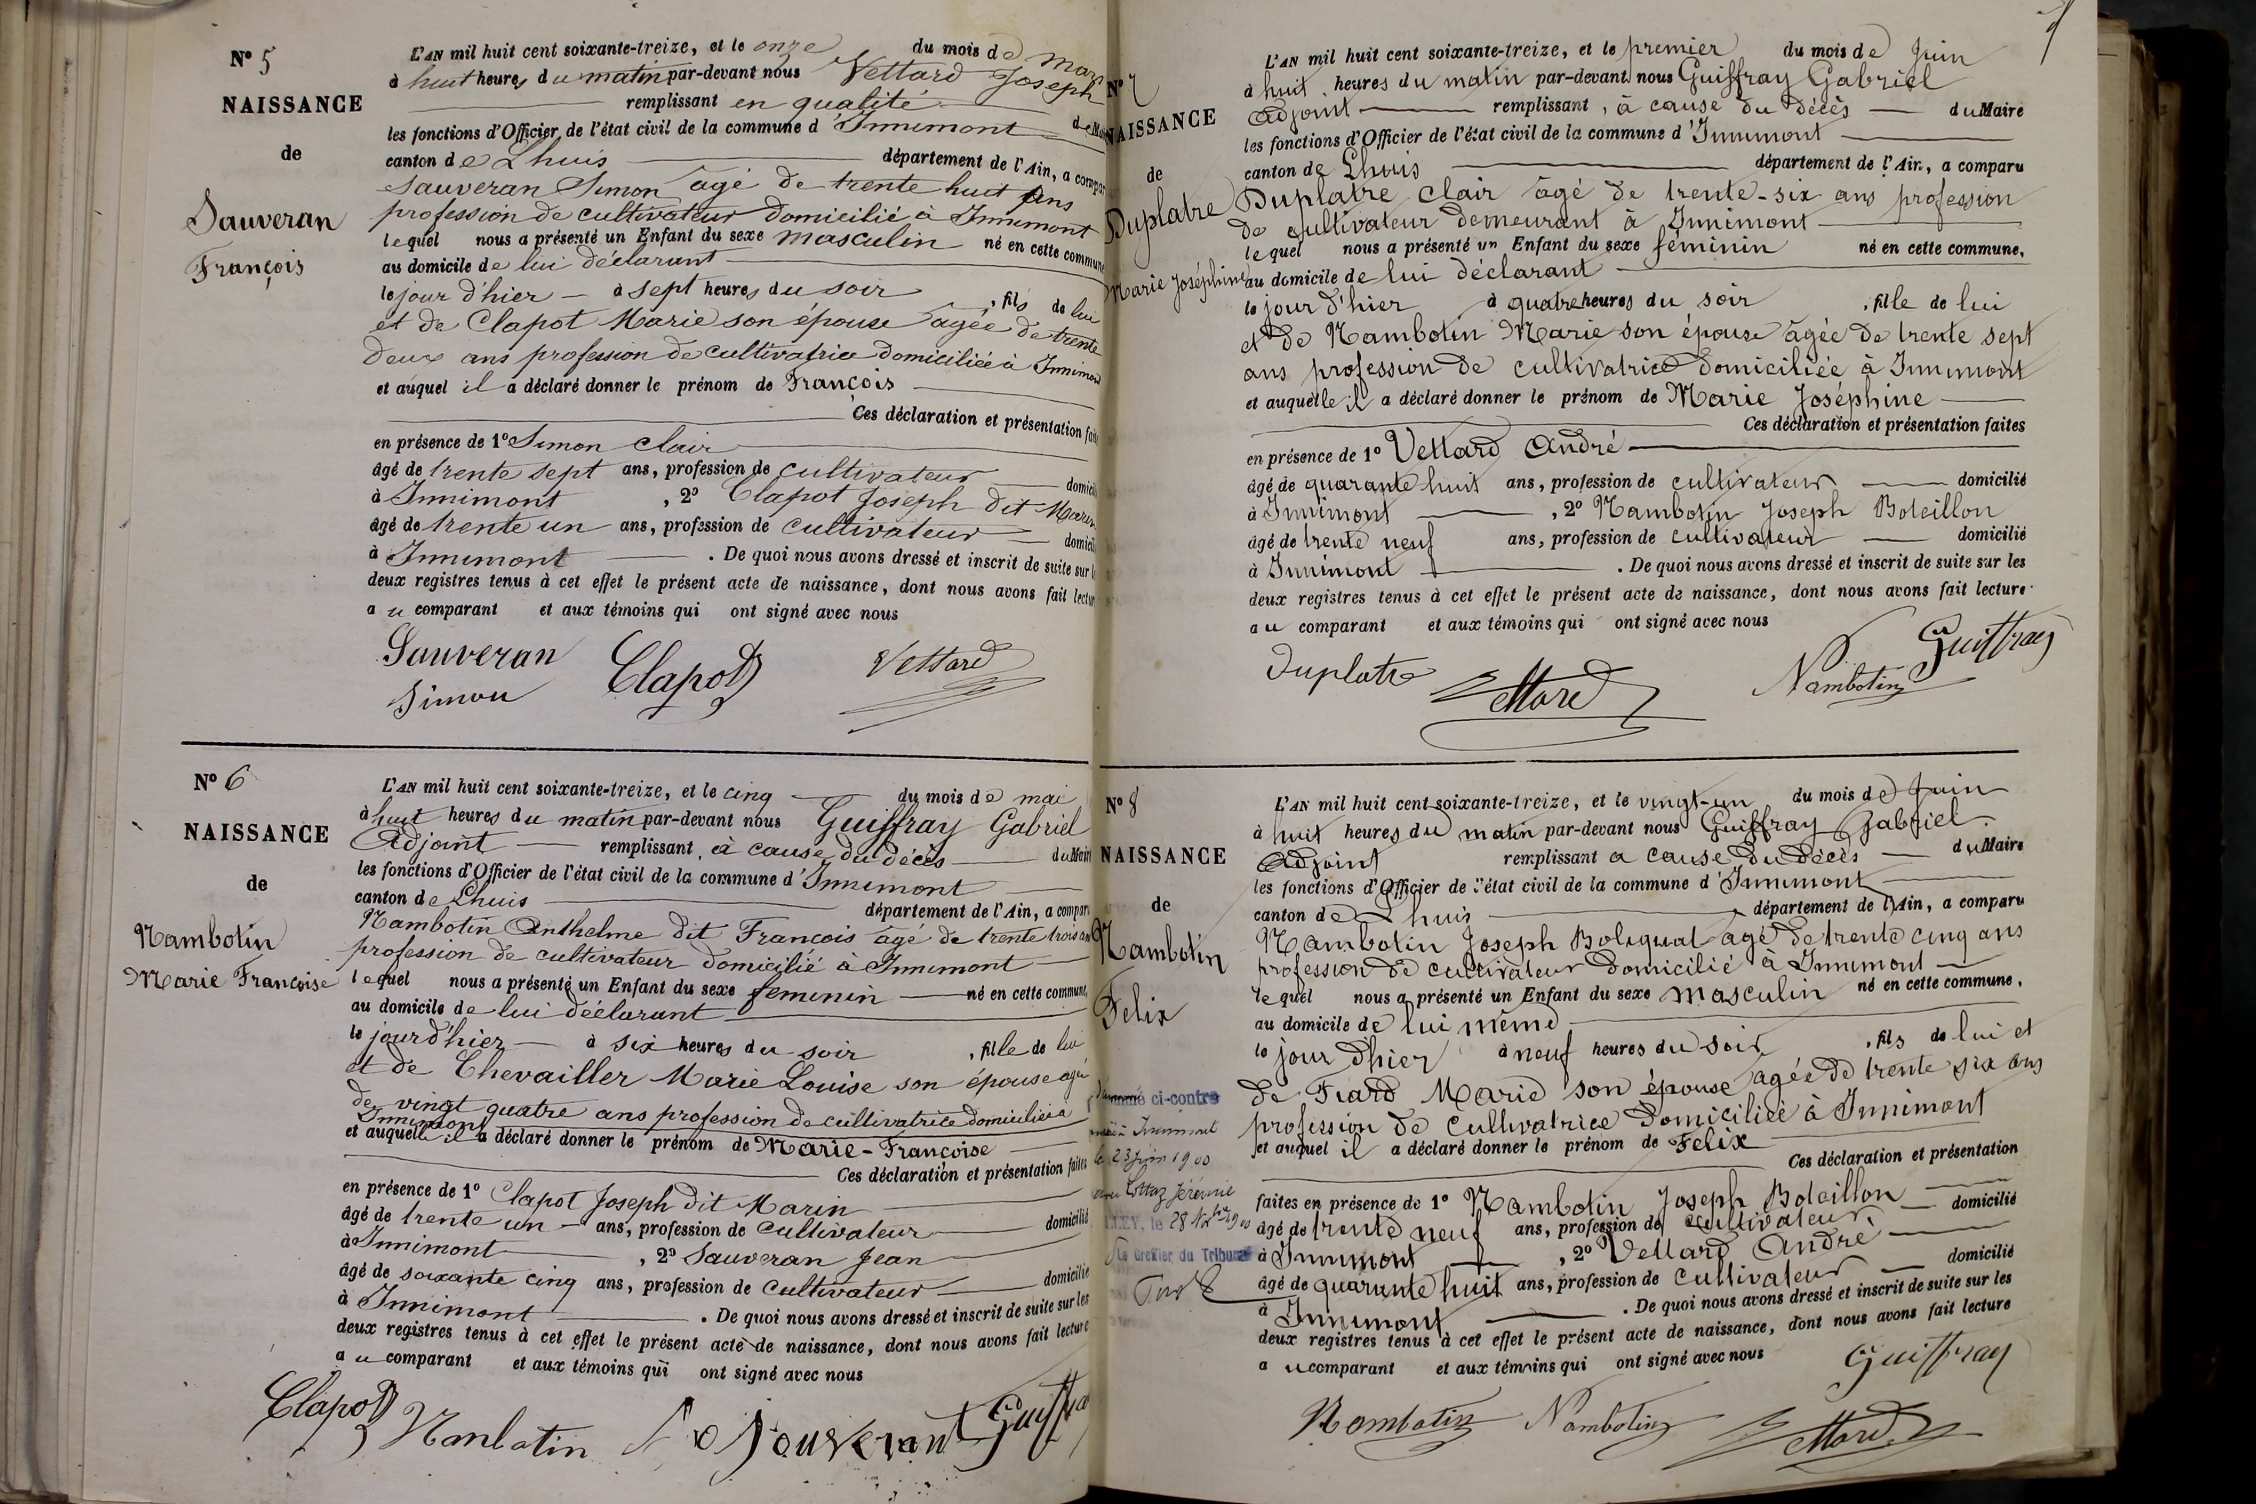 N° 5
NAISSANCE
de
Sauveran
François
L'AN mil huit cent soixante-treize, et le onze du mois de mars
à huit heures du matin par-devant nous Vettard Joseph
remplissant en qualité de Maire
les fonctions d'Officier de l'état civil de la commune d'Innimont
canton de Lhuis département de l'Ain, a comparu
Sauveran Simon âgé de trente huit ans
profession de cultivateur domicilié à Innimont
lequel nous a présenté un Enfant du sexe masculin né en cette commune
au domicile de lui déclarant
le jour d'hier à sept heures du soir, fils de lui
et de Clapot Marie son épouse âgée de trente
deux ans profession de cultivatrice domiciliée à Innimont
et auquel il a déclaré donner le prénom de François
Ces déclaration et présentation faites
en présence de 1° Simon Clair
âgé de trente sept ans, profession de cultivateur domicilié
à Innimont, 2° Clapot Joseph dit Marin
âgé de trente un ans, profession de cultivateur domicilié
à Innimont. De quoi nous avons dressé et inscrit de suite sur les
deux registres tenus à cet effet le présent acte de naissance, dont nous avons fait lecture
au comparant et aux témoins qui ont signé avec nous
Sauveran Clapot Vettard
Simon
N° 6
NAISSANCE
de
Nambotin
Marie Françoise
L'AN mil huit cent soixante-treize, et le cinq du mois de mai
à huit heures du matin par-devant nous Guiffray Gabriel
Adjoint remplissant, à cause du décès du Maire
les fonctions d'Officier de l'état civil de la commune d'Innimont
canton de Lhuis département de l'Ain, a comparu
Nambotin Anthelme dit François âgé de trente trois ans
profession de cultivateur domicilié à Innimont
lequel nous a présenté un Enfant du sexe feminin né en cette commune,
au domicile de lui déclarant
le jour d'hier à six heures du soir, fille de lui
et de Chevailler Marie Louise son épouse agée
de vingt quatre ans profession de cultivatrice domiciliée à
Innimont
et auquelle il a déclaré donner le prénom de Marie-Françoise
Ces déclaration et présentation faites
en présence de 1° Clapot Joseph dit Marin
âgé de trente un ans, profession de cultivateur domicilié
à Innimont, 2° Sauveran Jean
âgé de soixante cinq ans, profession de cultivateur domicilié
à Innimont. De quoi nous avons dressé et inscrit de suite sur les
deux registres tenus à cet effet le présent acte de naissance, dont nous avons fait lecture
au comparant et aux témoins qui ont signé avec nous
Clapot Nanbotin Souverant Guiffray
N° 7
NAISSANCE
de
Duplatre
Marie Joséphine
L'AN mil huit cent soixante-treize, et le premier du mois de Juin
à huit heures du matin par-devant nous Guiffray Gabriel
Adjoint remplissant, à cause du décès du Maire
les fonctions d'Officier de l'état civil de la commune d'Innimont
canton de Lhuis département de l'Ain, a comparu
Duplatre Clair âgé de trente-six ans profession
de cultivateur demeurant à Innimont
lequel nous a présenté un Enfant du sexe féminin né en cette commune,
au domicile de lui déclarant
le jour d'hier à quatre heures du soir, fille de lui
et de Nambotin Marie son épouse âgée de trente sept
ans profession de cultivatrice domiciliée à Innimont
et auquelle il a déclaré donner le prénom de Marie Joséphine
Ces déclaration et présentation faites
en présence de 1° Vettard André
âgé de quarante huit ans, profession de cultivateur domicilié
à Innimont, 2° Nambotin Joseph Boteillon
âgé de trente neuf ans, profession de cultivateur domicilié
à Innimont. De quoi nous avons dressé et inscrit de suite sur les
deux registres tenus à cet effet le présent acte de naissance, dont nous avons fait lecture
au comparant et aux témoins qui ont signé avec nous
Duplatre Vettard Nambotin Guiffray
N° 8
NAISSANCE
de
Nambotin
Felix
ci-contre
à Innimont
le 23 Juin 1900
Jérémie
le 28 1900
Le Greffier du Tribunal
L'AN mil huit cent soixante-treize, et le vingt-un du mois de Juin
à huit heures du matin par-devant nous Guiffray Gabriel
Adjoint remplissant a cause du décès du Maire
les fonctions d'Officier de l'état civil de la commune d'Innimont
canton de Lhuis département de l'Ain, a comparu
Nambotin Joseph âgé de trente cinq ans
profession de cultivateur domicilié à Innimont
lequel nous a présenté un Enfant du sexe masculin né en cette commune,
au domicile de lui même
le jour d'hier à neuf heures du soir, fils de lui et
de Fiard Marie son épouse agée de trente six ans
profession de cultivatrice domiciliée à Innimont
et auquel il a déclaré donner le prénom de Felix
Ces déclaration et présentation
faites en présence de 1° Nambotin Joseph Boteillon domicilié
âgé de trente neuf ans, profession de cultivateur
à Innimont, 2° Vettard André
âgé de quarante huit ans, profession de cultivateur domicilié
à Innimont. De quoi nous avons dressé et inscrit de suite sur les
deux registres tenus à cet effet le présent acte de naissance, dont nous avons fait lecture
au comparant et aux témoins qui ont signé avec nous Guiffray
Nambotin Nambotin Vettard